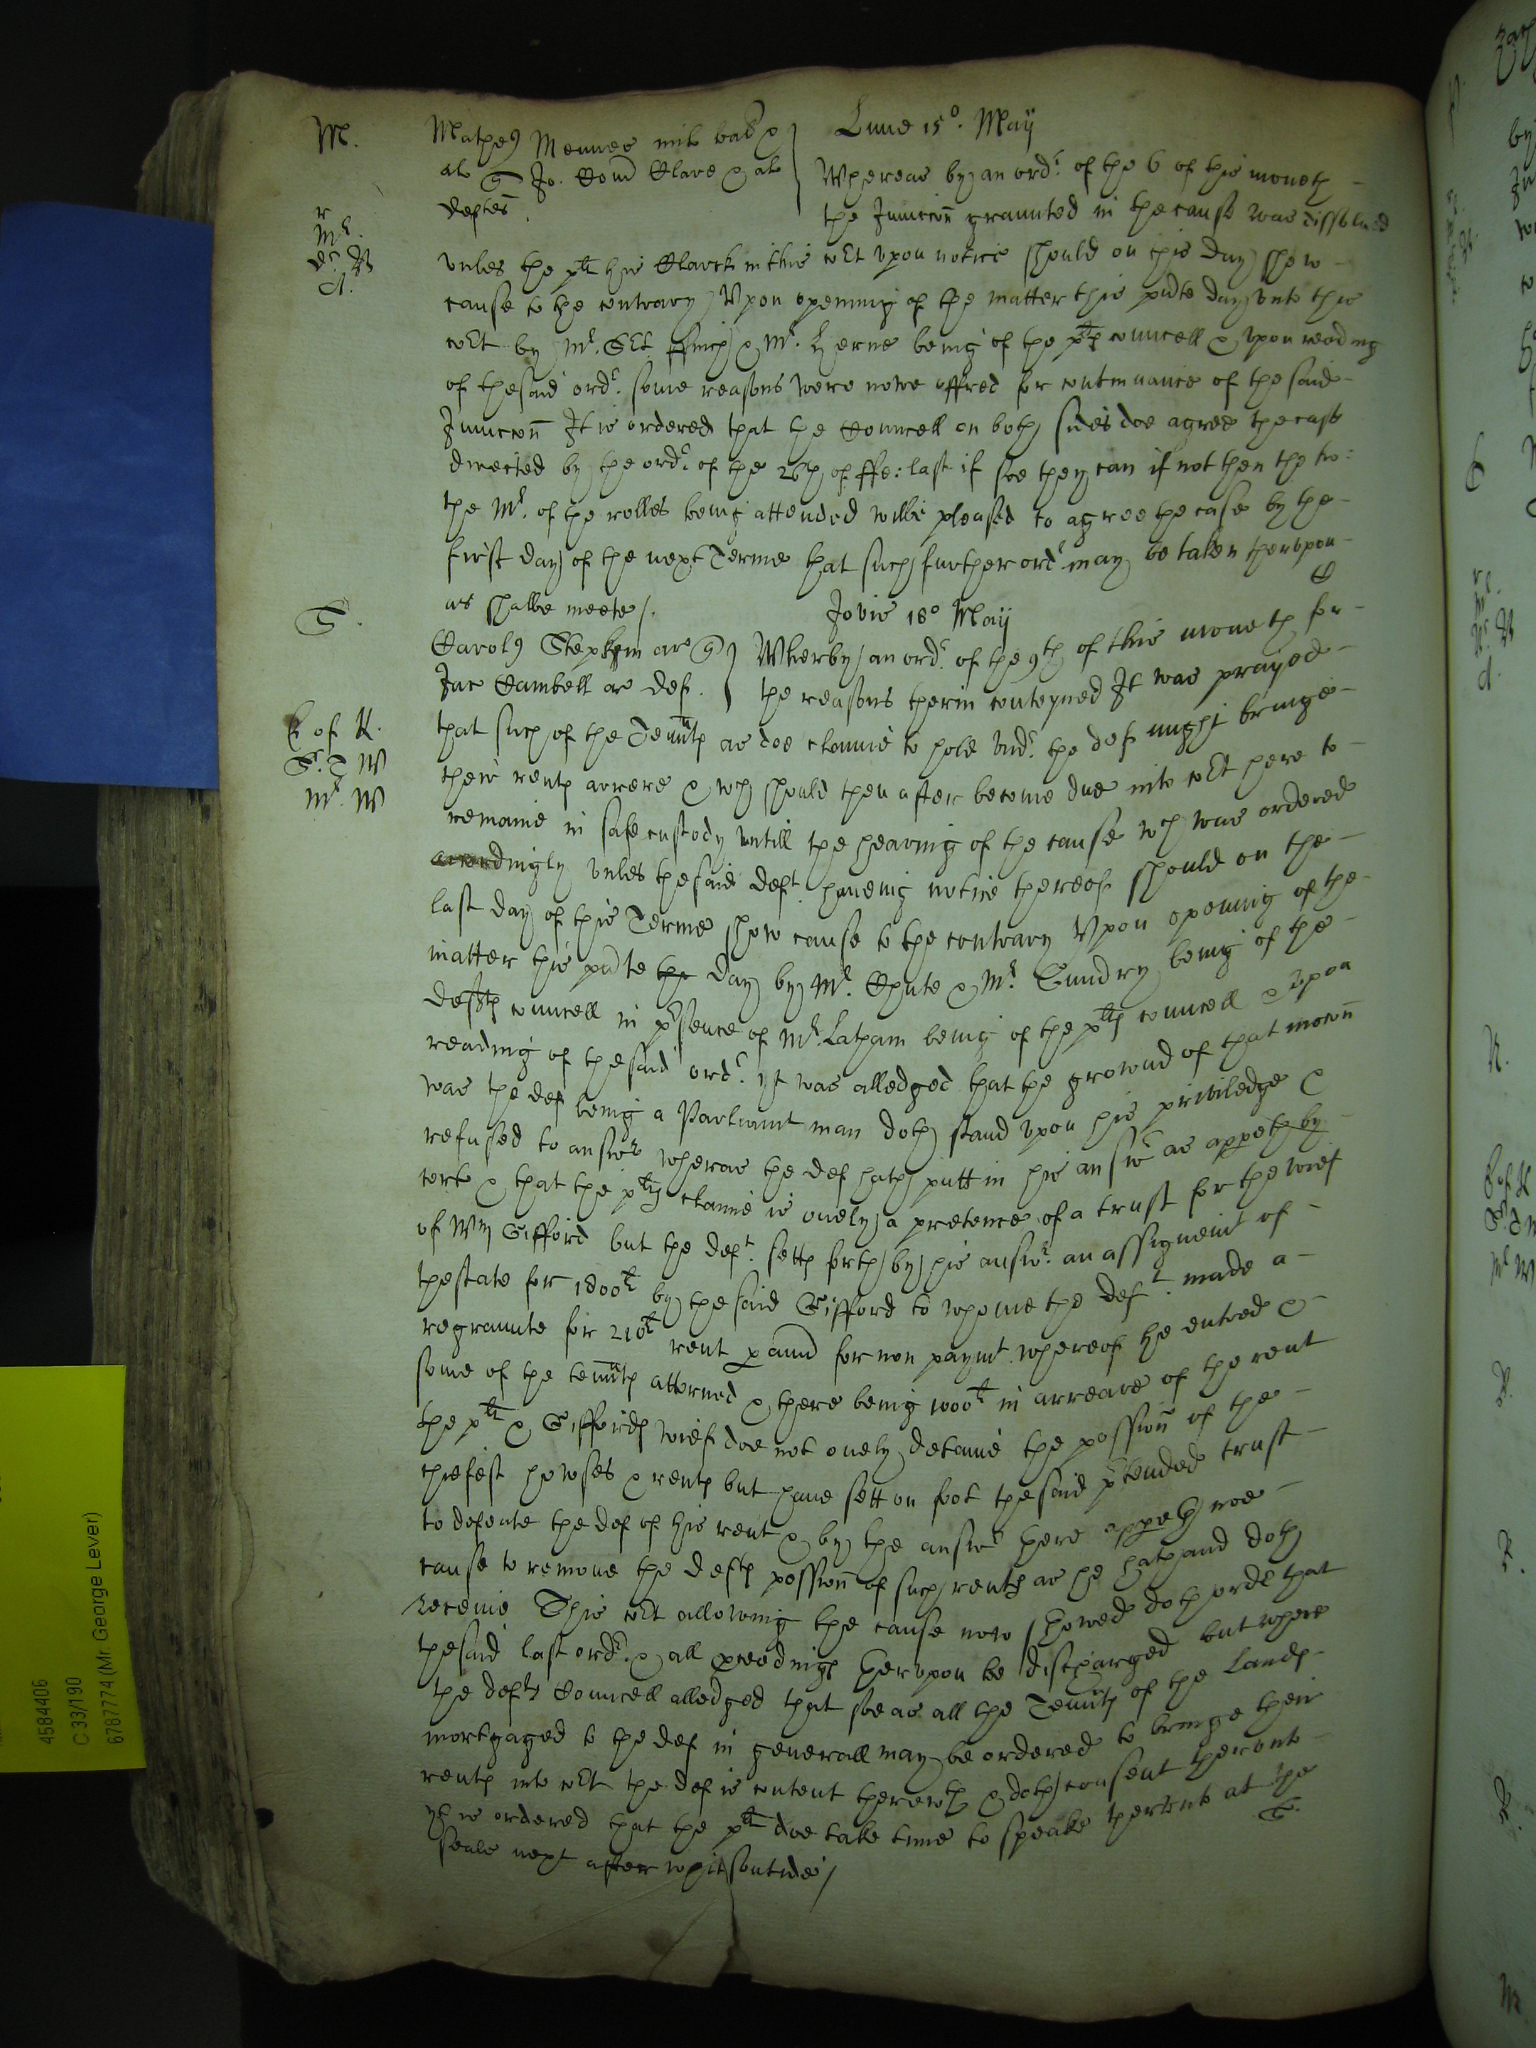 M.
Mathe9 Mennes mil bal & Lune 15°. Maij
al q Jo. Com Clare & al Whereas by an ordr. of the 6 of this moneth
deftes. the Juncon graunted in the cause was dissolued
r
Mr.
d.
vnles the plt his Clarck in this Cort vpon notice should on this day shew
cause to the contrary Vpon openinig of the matter this pnte day vnto this
Cort by Mr. Srt ffinch & Mr. Herne being of the plts councell & vpon reading
of the said ordr. some reasons were nowe offred for contenuance of the said
Juncon It is ordered that the Councell on both sides doe agree the case
directed by the ordr. of the 26th of ffe: last if soe they can if not then the
the Mr. of the rolles being attended wilbe pleased to agree the case by the
first day of the next Terme that such further ordr may be taken therevpon
as shalbe meete /. Jovis 18° Maij
S.
Carol9 Stepkyn ar q Wherby an ordr. of the 9th of this moneth for
Jac Cambell ar def. the reasons therin conteyned It was prayed
E of K.
Sr. T W
Mr. W
that such of the Tennts as doe clayme to hold vndr. the def might bringe
their rents arrere & wch should then after become due into Cort here to
remaine in safe custody vntill the hearing of the cause wch was ordered
accordingly vnles the said deft. haveing notice thereof should on the
last day of this Terme shew cause to the contrary Vpon opening of the
matter this pnte the day by Mr. Chute & Mr. Gundry being of the
defts councell in psence of Mr. Latham being of the plts councell & vpon
reading of the said ordr. it was alledged that the grownd of that mocon
was the def being a Parliamt man doth stand vpon his priviledge &
refused to answr wheras the def hath putt in his answr as appeth by
certe & that the plts claime is onely a pretence of a trust for the wief
of Wm Gifford but the deft. setts forth by his answr. an assignemt of
thestate for 1800li by the said Gifford to whome the deft. made a
regraunte for 210li rent p ann for non paymt whereof he entred &
some of the tennts attorned & there being 1000li in arreare of the rent
the plt & Giffords wief doe not onely detaine the possion of the
chiefest howses & rents but have sett on foot the said ptended trust
to defeate the def of his rent & by the answr here appeth noe
cause to remove the defts possion of such rents as he hath and doth
receive This Cort allowing the cause now showed doth ordr that
the said last ordr. & all proceedings therupon be discharged but where
the defts Councell alledged that soe as all the Tennts of the lands
mortgaged to the def in generall may be ordered to bringe their
rents into Cort the def is content therewth & doth consent therunto
yt is ordered that the plt doe take time to speake therunto at the
seale next after whitsontide /
4584406
C 33/190
6787774 (Mr. George Lever)